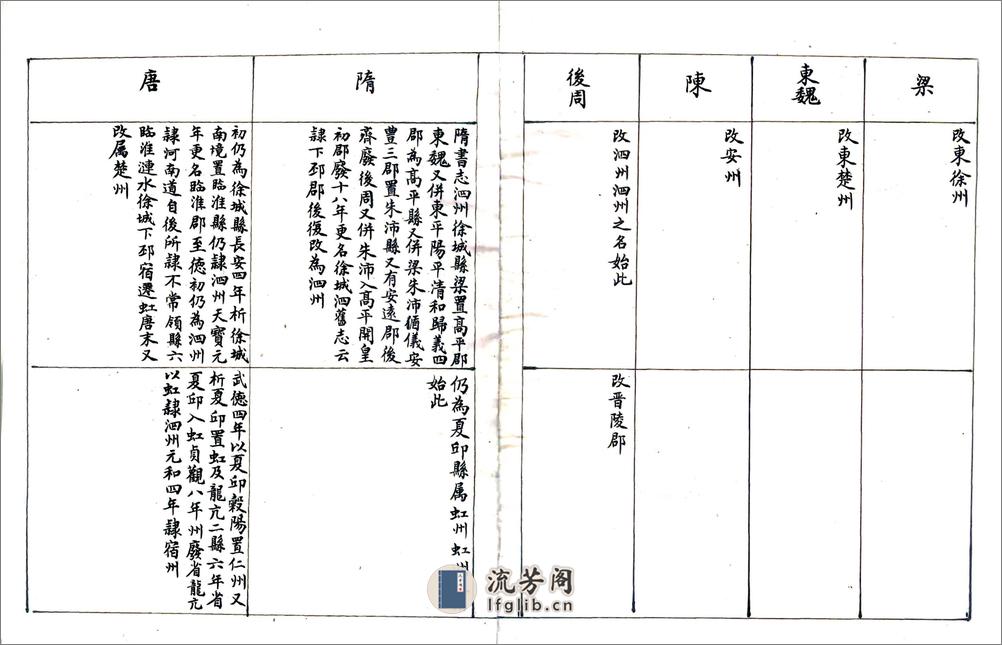 梁
改東徐州
東魏
改東楚州
陳
改安州
後周
改泗州泗州之名始此
改晋陵郡
隋
隋書志泗州徐城縣梁置高平郡
東魏又併東平陽平清和歸義四
郡為高平縣又併梁朱沛循儀安
豊三郡置朱沛縣又有安遠郡後
齊廢後周又併朱沛入高平開皇
初郡廢十八年更名徐城泗舊志云
隷下邳郡後復改為泗州
仍為夏邱縣属虹州虹州
始此
唐
初仍為徐城縣長安四年析徐城
南境置臨淮縣仍隷泗州天寶元
年更名臨淮郡至德初仍為泗州
隷河南道自後所隷不常領縣六
臨淮漣水徐城下邳宿遷虹唐末又
改属楚州
武德四年以夏邱穀陽置仁州又
析夏邱置虹及龍亢二縣六年省
夏邱入虹貞觀八年州廢省龍亢
以虹隷泗州元和四年隷宿州
流芳阁
lfglib.cn